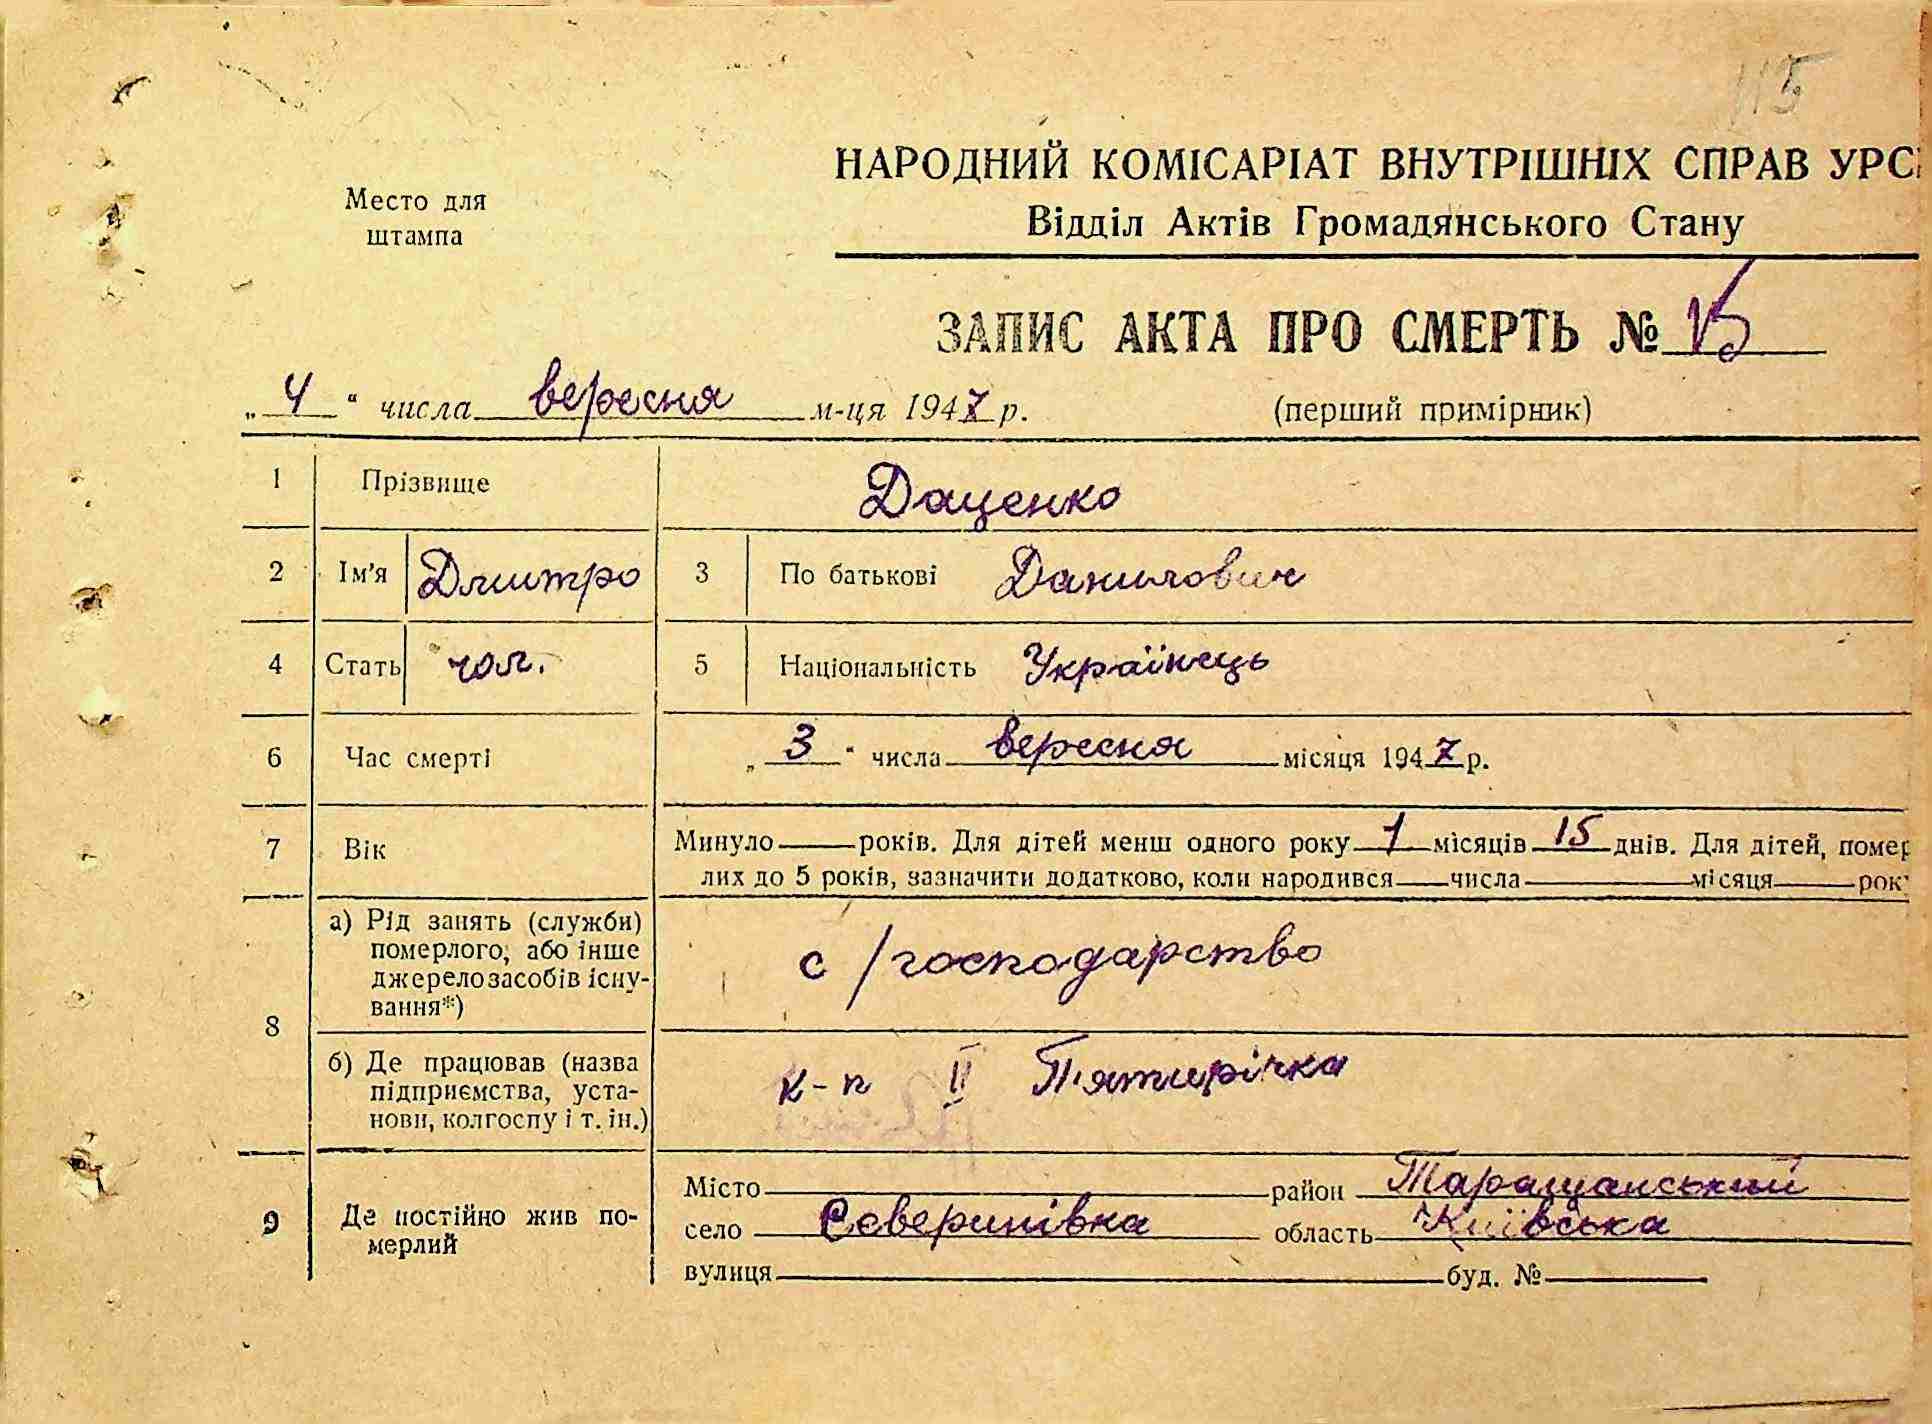 115
НАРОДНИЙ КОМІСАРІАТ ВНУТРІШНІХ СПРАВ УРС
Место для
штампа
Відділ Актів Громадянського Стану
ЗАПИС АКТА ПРО СМЕРТЬ № 15
„ 4 “ числа вересня м-ця 1947 р.
(перший примірник)
1 Прізвище Даценко
2 Ім'я Дмитро 3 По батькові Данилович
4 Стать чол. 5 Національність Українець
6 Час смерті „ 3 “ числа вересня місяця 1947 р.
7 Вік Минуло років. Для дітей менш одного року 1 місяців 15 днів. Для дітей, помер
лих до 5 років, зазначити додатково, коли народився числа місяця рок
8 а) Рід занять (служби)
померлого, або інше
джерело засобів існу-
вання*)
с/господарство
б) Де працював (назва
підприємства, уста-
нови, колгоспу і т. ін.)
к-п ІІ П'ятирічка
9 Де постійно жив по-
мерлий
Місто район Таращанський
село Северинівка область Київська
вулиця буд. №